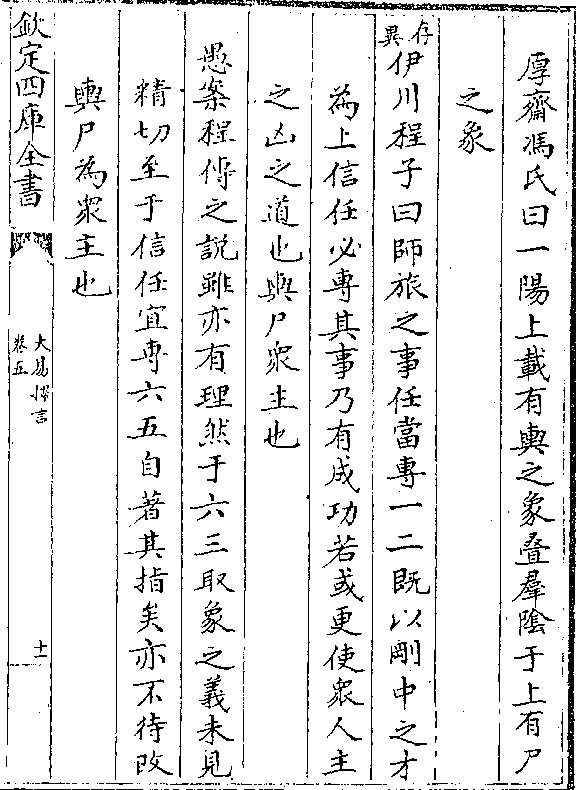 厚齋馮氏曰一陽上載有輿之象疊羣陰于上有尸
之象
存異
伊川程子曰師旅之事任當專一二既以剛中之才
為上信任必專其事乃有成功若或更使衆人主
之凶之道也輿尸衆主也
愚案程傳之說雖亦有理然于六三取象之義未見
精切至于信任宜專六五自著其指矣亦不待改
輿尸為衆主也
欽定四庫全書
大易擇言
卷五
十一